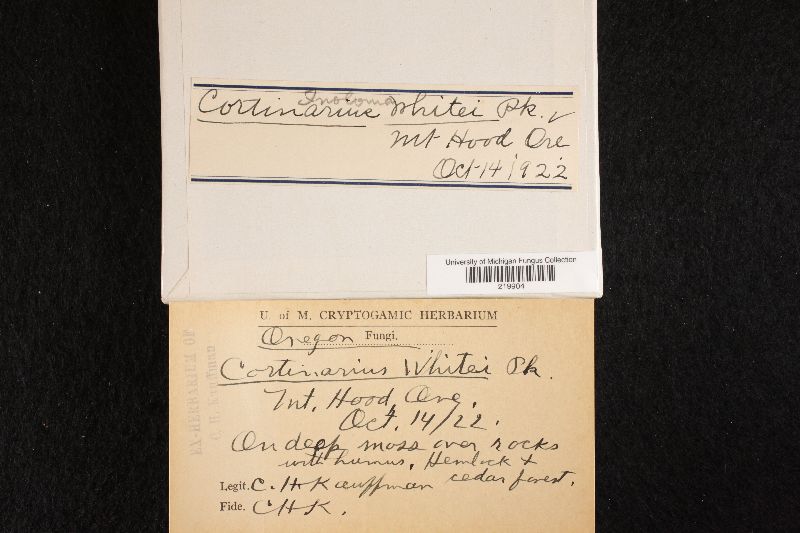 Inoloma
Cortinarius Whitei Pk.
Mt Hood Ore
Oct 14 1922
University of Michigan Fungus Collection
219904
U. of M. CRYPTOGAMIC HERBARIUM
Oregon Fungi.
Cortinarius Whitei Pk.
Mt. Hood, Ore.
Oct. 14/22.
On deep moss over rocks
with humus. Hemlock &
cedar forest.
Legit. C. H. Kauffman
Fide. CHK.
EX-HERBARIUM OF
C. H. Kauffman